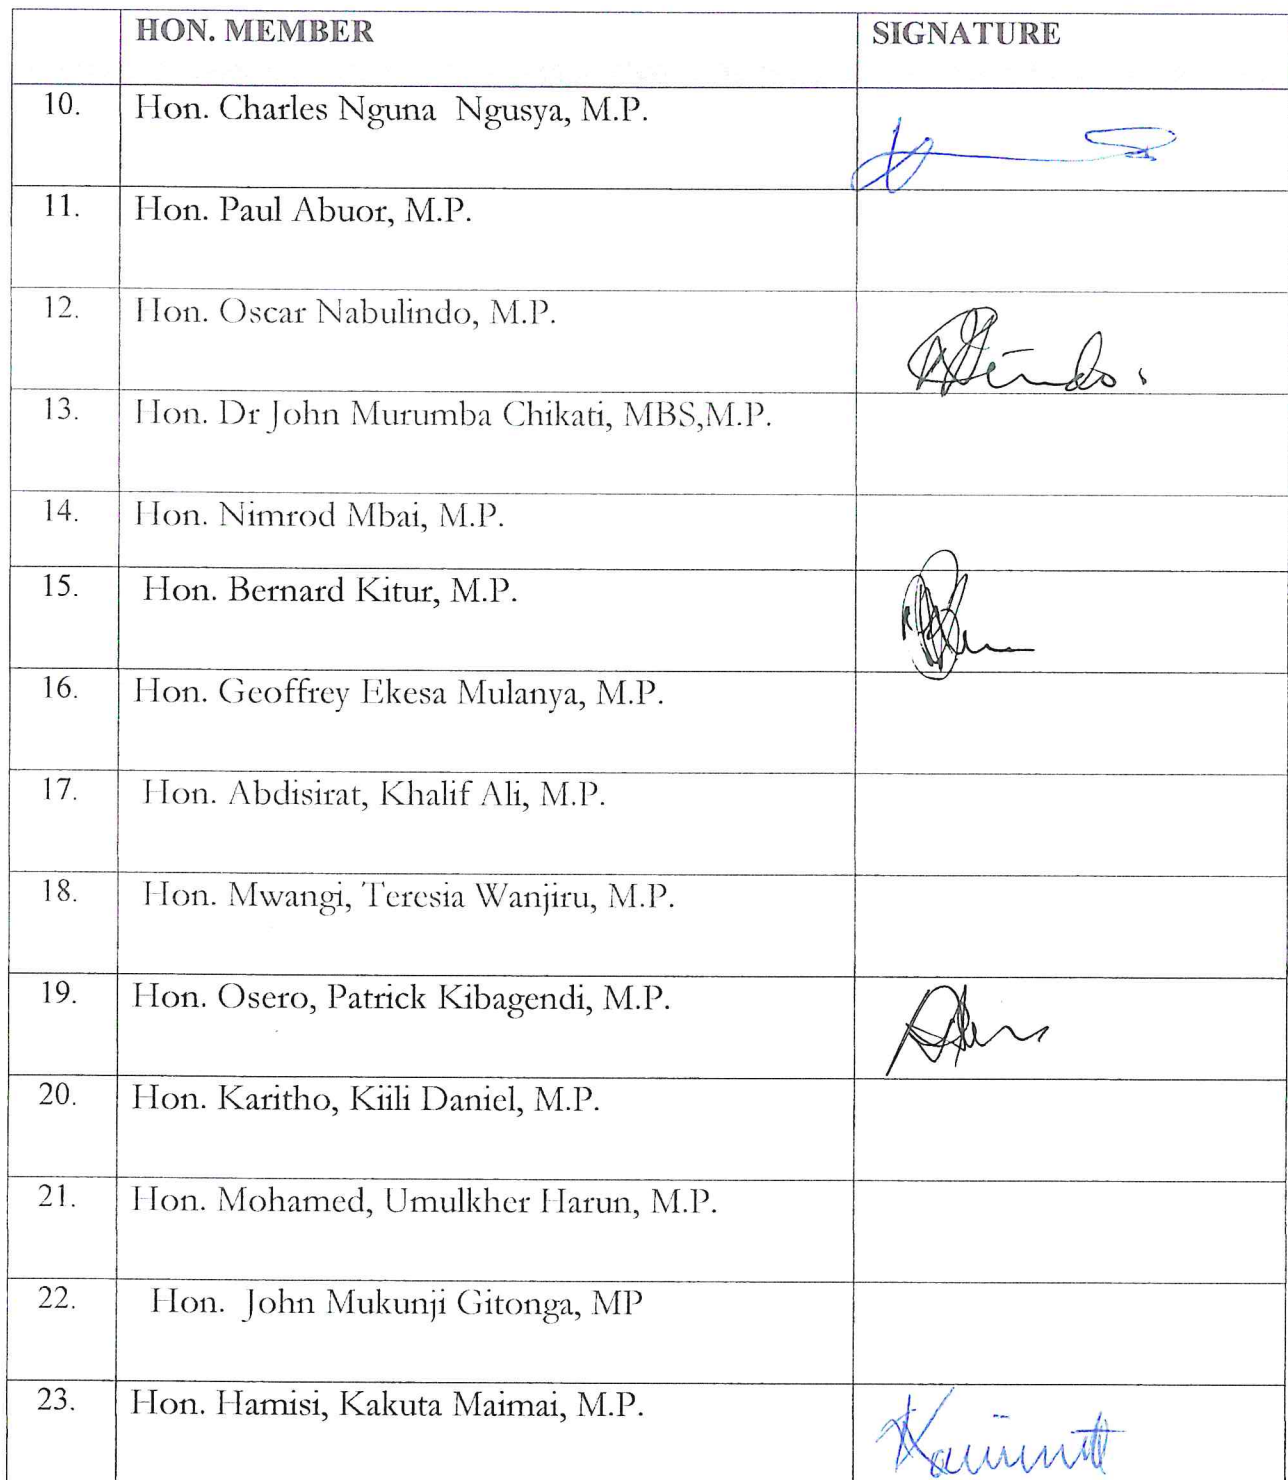 HON. MEMBER SIGNATURE
10. Hon. Charles Nguna Ngusya, M.P.
11. Hon. Paul Abuor, M.P.
12. Hon. Oscar Nabulindo, M.P.
13. Hon. Dr John Murumba Chikati, MBS,M.P.
14. Hon. Nimrod Mbai, M.P.
15. Hon. Bernard Kitur, M.P.
16. Hon. Geoffrey Ekesa Mulanya, M.P.
17. Hon. Abdisirat, Khalif Ali, M.P.
18. Hon. Mwangi, Teresia Wanjiru, M.P.
19. Hon. Osero, Patrick Kibagendi, M.P.
20. Hon. Karitho, Kiili Daniel, M.P.
21. Hon. Mohamed, Umulkher Harun, M.P.
22. Hon. John Mukunji Gitonga, MP
23. Hon. Hamisi, Kakuta Maimai, M.P.